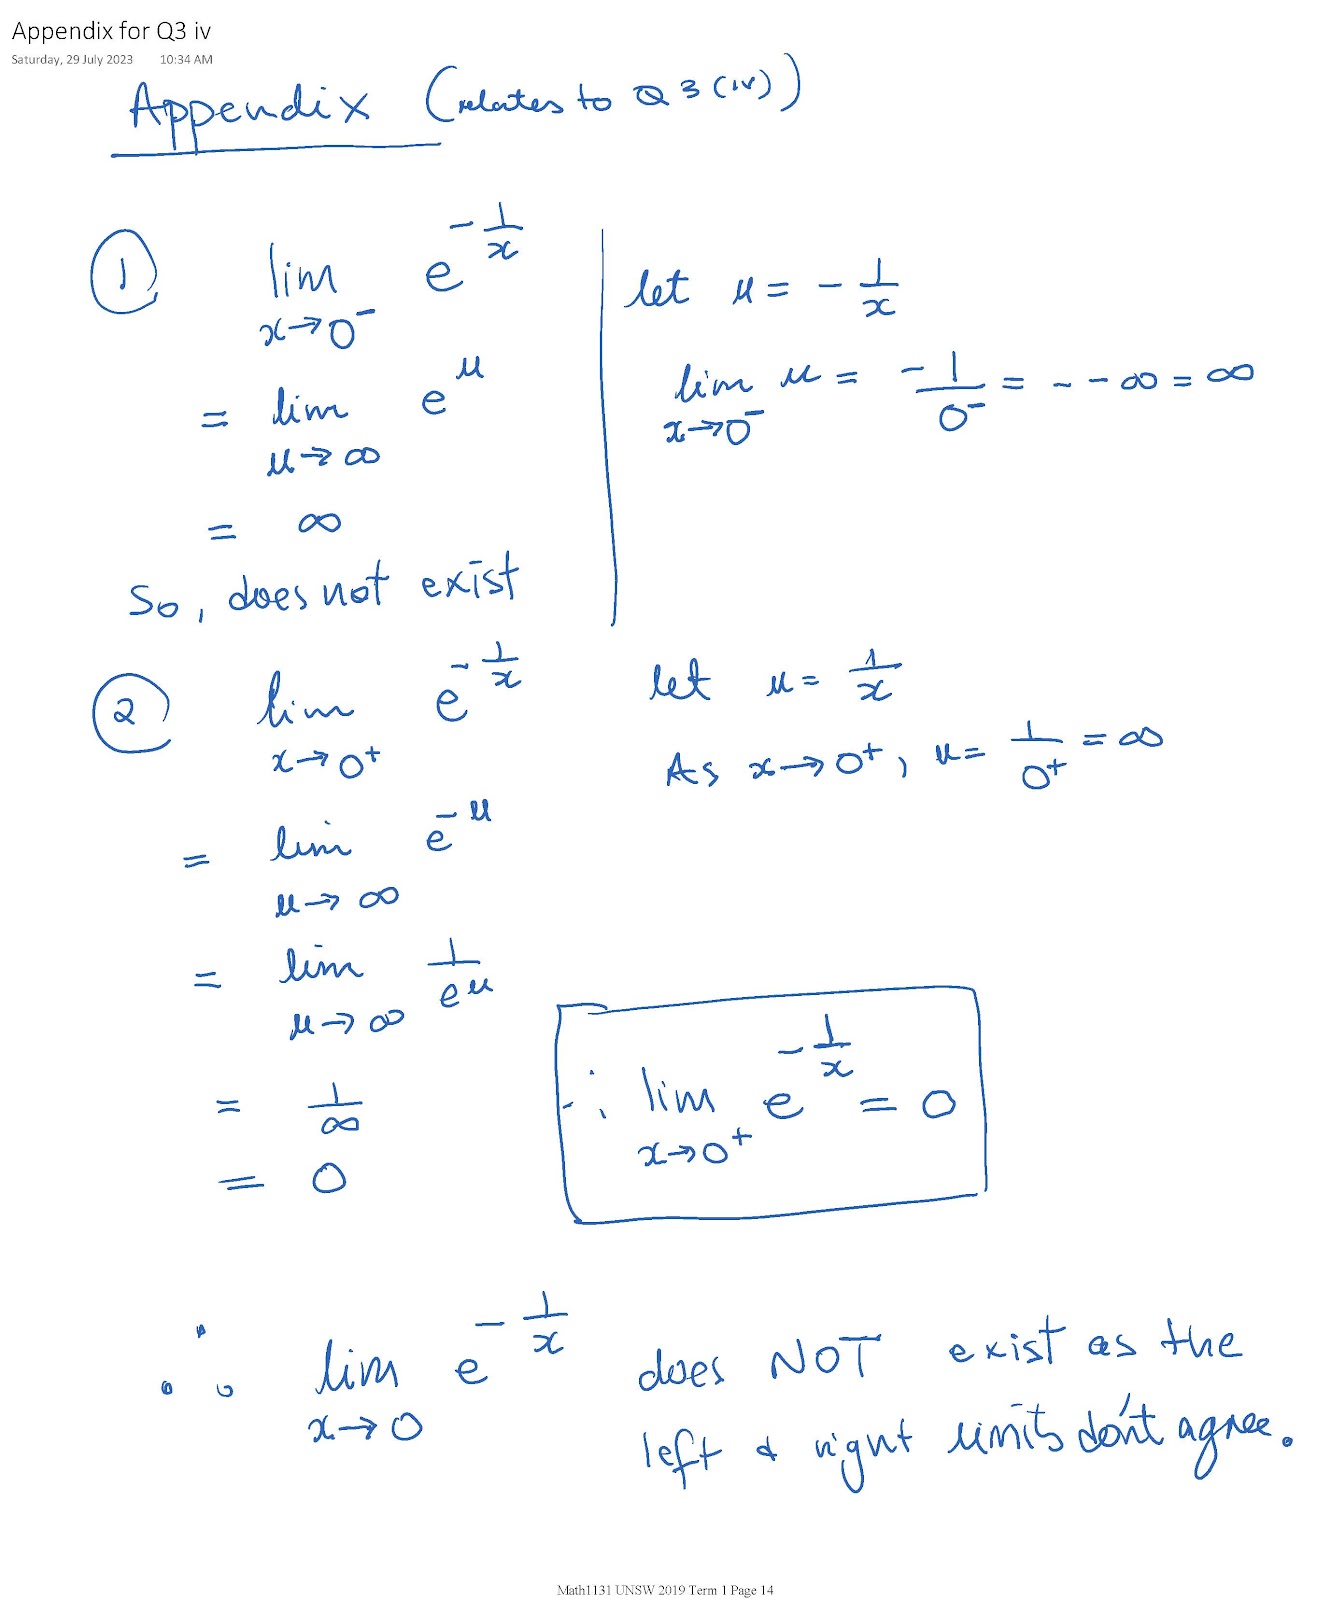 Appendix for Q3 iv
Saturday, 29 July 2023 10:34 AM
Appendix (relates to Q3(iv))
① lim x→0⁻ e^(-1/x)
let u = -1/x
lim x→0⁻ u = -1/0⁻ = --∞ = ∞
= lim u→∞ e^u
= ∞
So, does not exist
② lim x→0⁺ e^(-1/x)
let u = 1/x
As x→0⁺, u = 1/0⁺ = ∞
= lim u→∞ e^(-u)
= lim u→∞ 1/e^u
= 1/∞
= 0
∴ lim x→0⁺ e^(-1/x) = 0
∴ lim x→0 e^(-1/x) does NOT exist as the
left & right limits don't agree.
Math1131 UNSW 2019 Term 1 Page 14